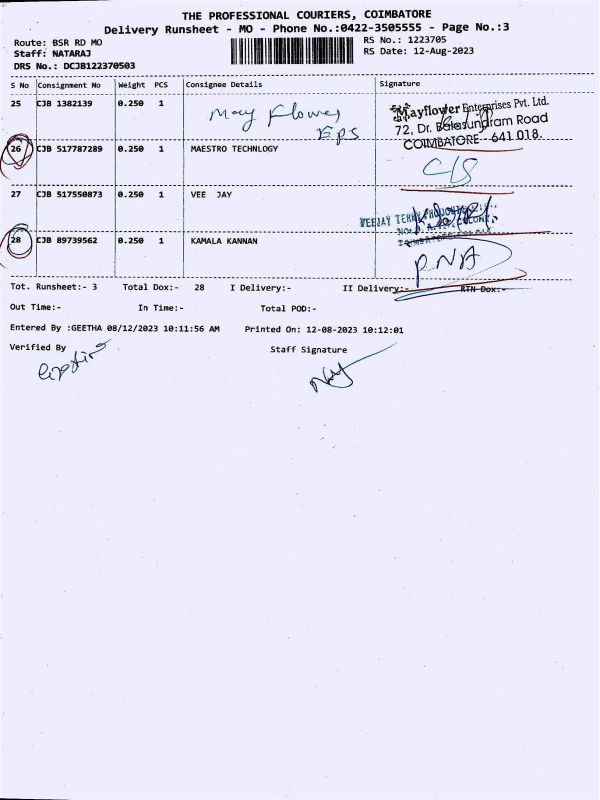 THE PROFESSIONAL COURIERS, COIMBATORE
Delivery Runsheet - MO - Phone No.:0422-3505555 - Page No.:3
Route: BSR RD MO
RS No.: 1223705
Staff: NATARAJ
RS Date: 12-Aug-2023
DRS No.: DCJB122370503
S No Consignment No Weight PCS Consignee Details Signature
25 CJB 1382139 0.250 1 May Flower
EPS
Mayflower Enterprises Pvt. Ltd.
72, Dr. Balasundram Road
COIMBATORE - 641 018.
26 CJB 517787289 0.250 1 MAESTRO TECHNLOGY C/S
27 CJB 517550873 0.250 1 VEE JAY
VEEJAY TERRY PRODUCTS
28 CJB 89739562 0.250 1 KAMALA KANNAN PNA
Tot. Runsheet:- 3 Total Dox:- 28 I Delivery:- II Delivery:- RTN Dox:-
Out Time:- In Time:- Total POD:-
Entered By :GEETHA 08/12/2023 10:11:56 AM Printed On: 12-08-2023 10:12:01
Verified By Staff Signature